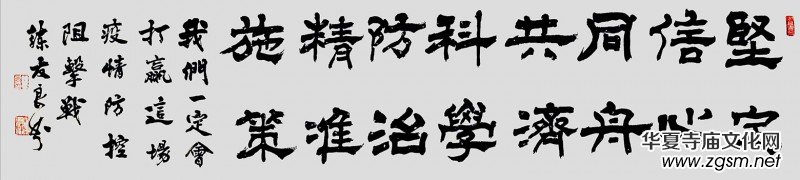 堅定
信心
同舟
共濟
科學
防治
精准
施策
我們一定會
打贏這場
疫情防控
阻擊戰
練友良书
华夏寺庙文化网
www.zgsm.net